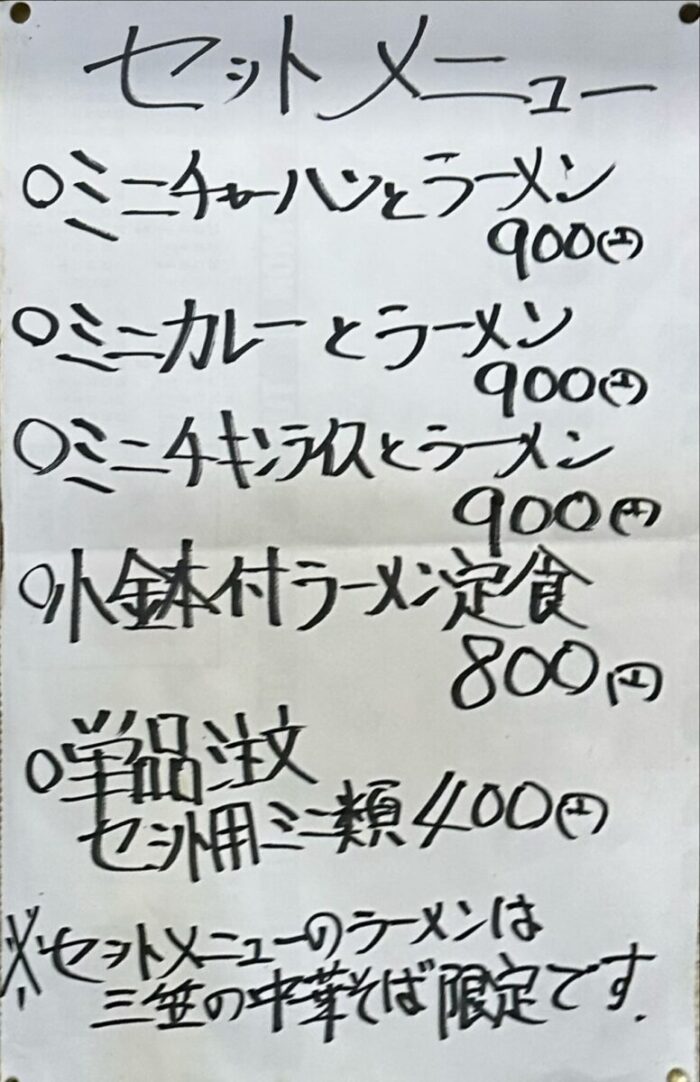 セットメニュー
○ミニチャーハンとラーメン
900円
○ミニカレーとラーメン
900円
○ミニチキンライスとラーメン
900円
○小鉢付ラーメン定食
800円
○単品注文
セット用ミニ類400円
※セットメニューのラーメンは
三笠の中華そば限定です.